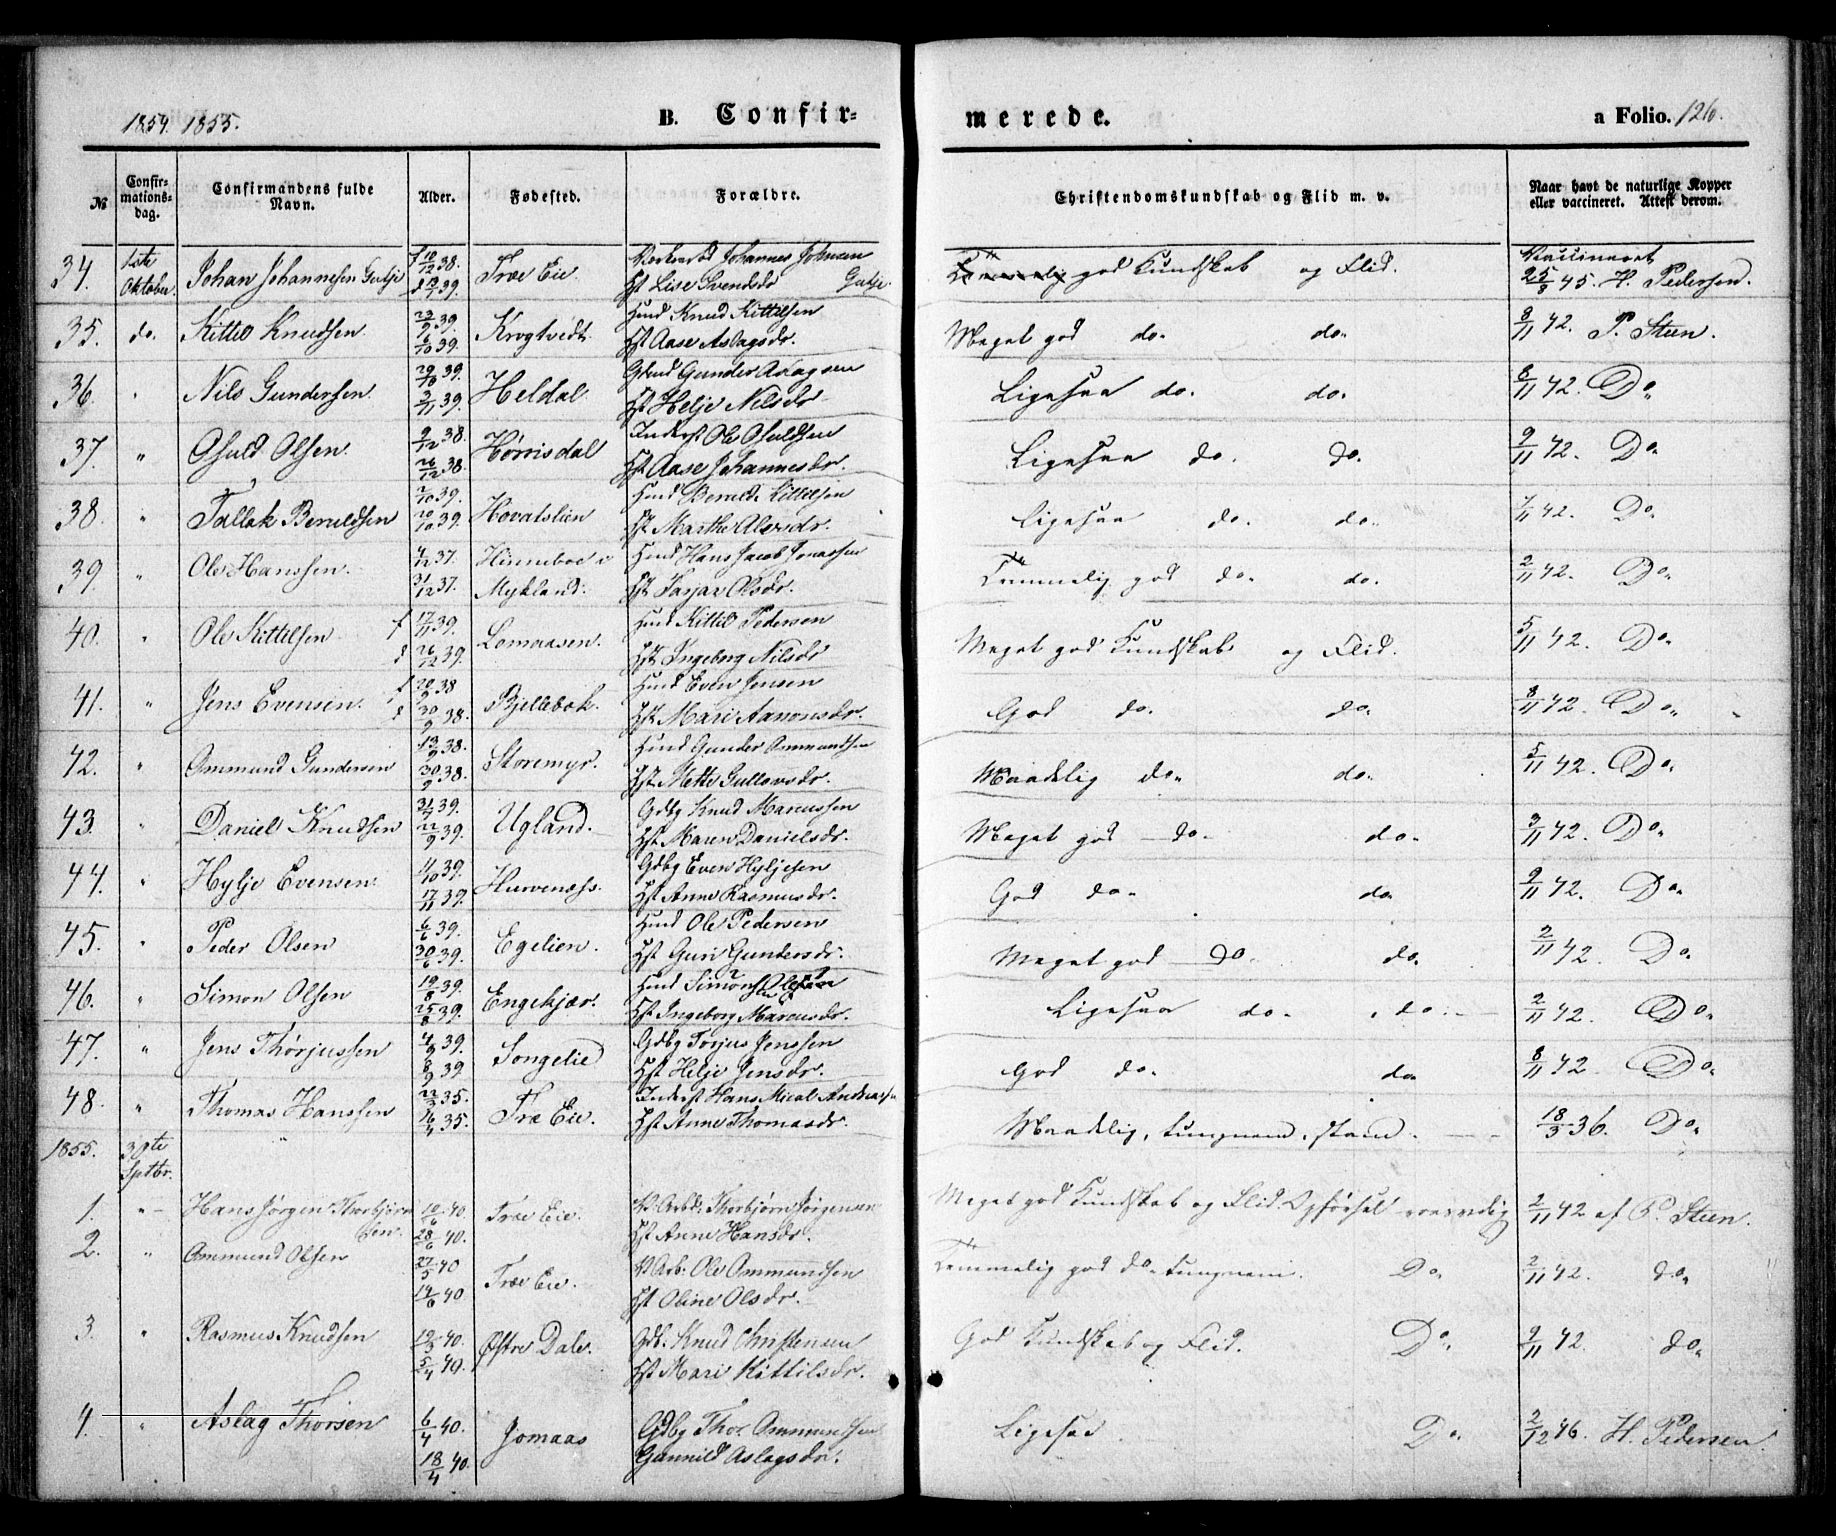 1854. 1855. B. Confir- merede. a Folio. 126.
№ Confir-mations-dag. Confirmandens fulde Navn. Alder. Fødested. Forældre. Christendomskundskab og Flid m. v. Naar havt de naturlige Kopper eller vaccineret. Attest derom.
34. 1ste Oktober. Johan Johannesen Gutje f 10/12 38. d 12/1 39. Træ Eie Johannes Johnsen Gutje Hst Lise Svendsdr god Kundskab og Flid. Vaccineret 25/8 45. H. Pedersen.
35. do. Kittel Knudsen 23/9 39. 6/10 39. Krogtvedt Huusmd Knud Kittilsen Hst Aase Aslagsdr. Meget god do. do. 8/11 42. P. Steen.
36. " Nils Gundersen 29/10 39. 3/11 39. Heldal Gunder Aslagsen Hst Helje Nilsdr Ligesaa do. do. 8/11 42. Do
37. " Osuld Olsen 9/12 38. 26/12 38. Hørrisdal Inderst Ole Osuldsen Hst Aase Johannesdr. Ligesaa do. do. 9/11 42. Do
38. " Tallak Beruldsen 2/10 39. 20/10 39. Hovatslien Beruld Kittilsen Hst Marthe Alersdr. Ligesaa do. do. 7/11 42. Do
39. " Ole Hanssen. 4/12 37. 31/12 37. Hinneboe i Mykland. Hans Jacob Jonassen Hst Olsdr. Temmelig god do. do. 2/11 42. Do
40. " Ole Kittilsen f 17/11 39. d 26/12 39. Lomaasen. Kittil Pedersen Hst Ingeborg Nilsdr Meget god Kundskab og Flid. 5/11 42. Do
41. " Jens Evensen. f 20/9 38 d 30/9 38. Bjellebek. Even Jensen Hst Mari Aanonsdr. God do. do. 8/11 42. Do
42. " Ommund Gundersen 13/9 38. 30/9 38. Storemyr. Gunder Ommundsen Hst Mette Gullovsdr. Maadelig do. do. 5/11 42. Do
43. " Daniel Knudsen 31/7 39. 22/9 39. Ugland. Gdbg Knud Marcussen Hst Maren Danielsdr. Meget god do. do. 3/11 42. Do
44. " Hylje Evensen. 4/10 39. 17/11 39. Hurvenæss. Gdbg Even Hyljesen Hst Anne Rasmusdr. God do. do. 9/11 42. Do
45. " Peder Olsen 6/6 39. 30/6 39. Egelien. Ole Pedersen Hst Guri Gundersdr. Meget god do. do. 2/11 42. Do
46. " Simon Olsen 19/8 39. 25/8 39. Engekjær. Hst Ingeborg Marcusdr. Ligesaa do. do. 2/11 42. Do
47. " Jens Thorjussen 4/9 39. 8/9 39 Songelie Gdbg Torjus Jenssen Hst Helje Jensdr. God do. do. 8/11 42. Do
48. " Thomas Hanssen 22/3 35. 16/4 35. Træ Eie. Inderst Hans Mical Andreassen Hst Anne Thomasdr. Maadelig, tungnem, 18/3 36. Do
1855. 30te Sptbr.
1. " Hans Jørgen Thorbjørnsen. 10/6 40 28/6 40. Træ Eie. Thorbjørn Jørgensen Hst Anne Hansdr. Meget god Kundskab og Flid. Opførsel 2/11 42 af P. Steen.
2. " Ommund Olsen 27/5 40 14/6 40 Træ Eie. Ole Ommundsen Hst Oline Olsdr. Temmelig god do. tungnem. Do 2/11 42. do
3. " Rasmus Knudsen 12/3 40. 5/4 40. Østre Dale. Gdb. Knud Christensen Hst Mari Kittilsdr. God Kundskab og Flid. Do 9/11 42. do
4. " Aslag Thorsen 6/4 40. 18/4 40. Jomaas Gdbg Thor Ommundsen Gunnild Aslagsdr. Ligesaa Do 2/12 46. H. Pedersen.